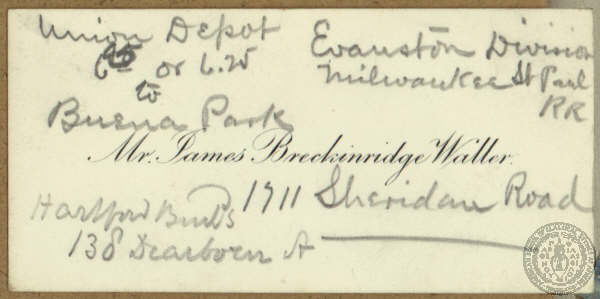 Union Depot
6 or 6.25
to
Buena Park
Evanston Division
Milwaukee St Paul
RR
Mr. James Breckinridge Waller.
1911 Sheridan Road
Hartford Build'g
138 Dearborn St